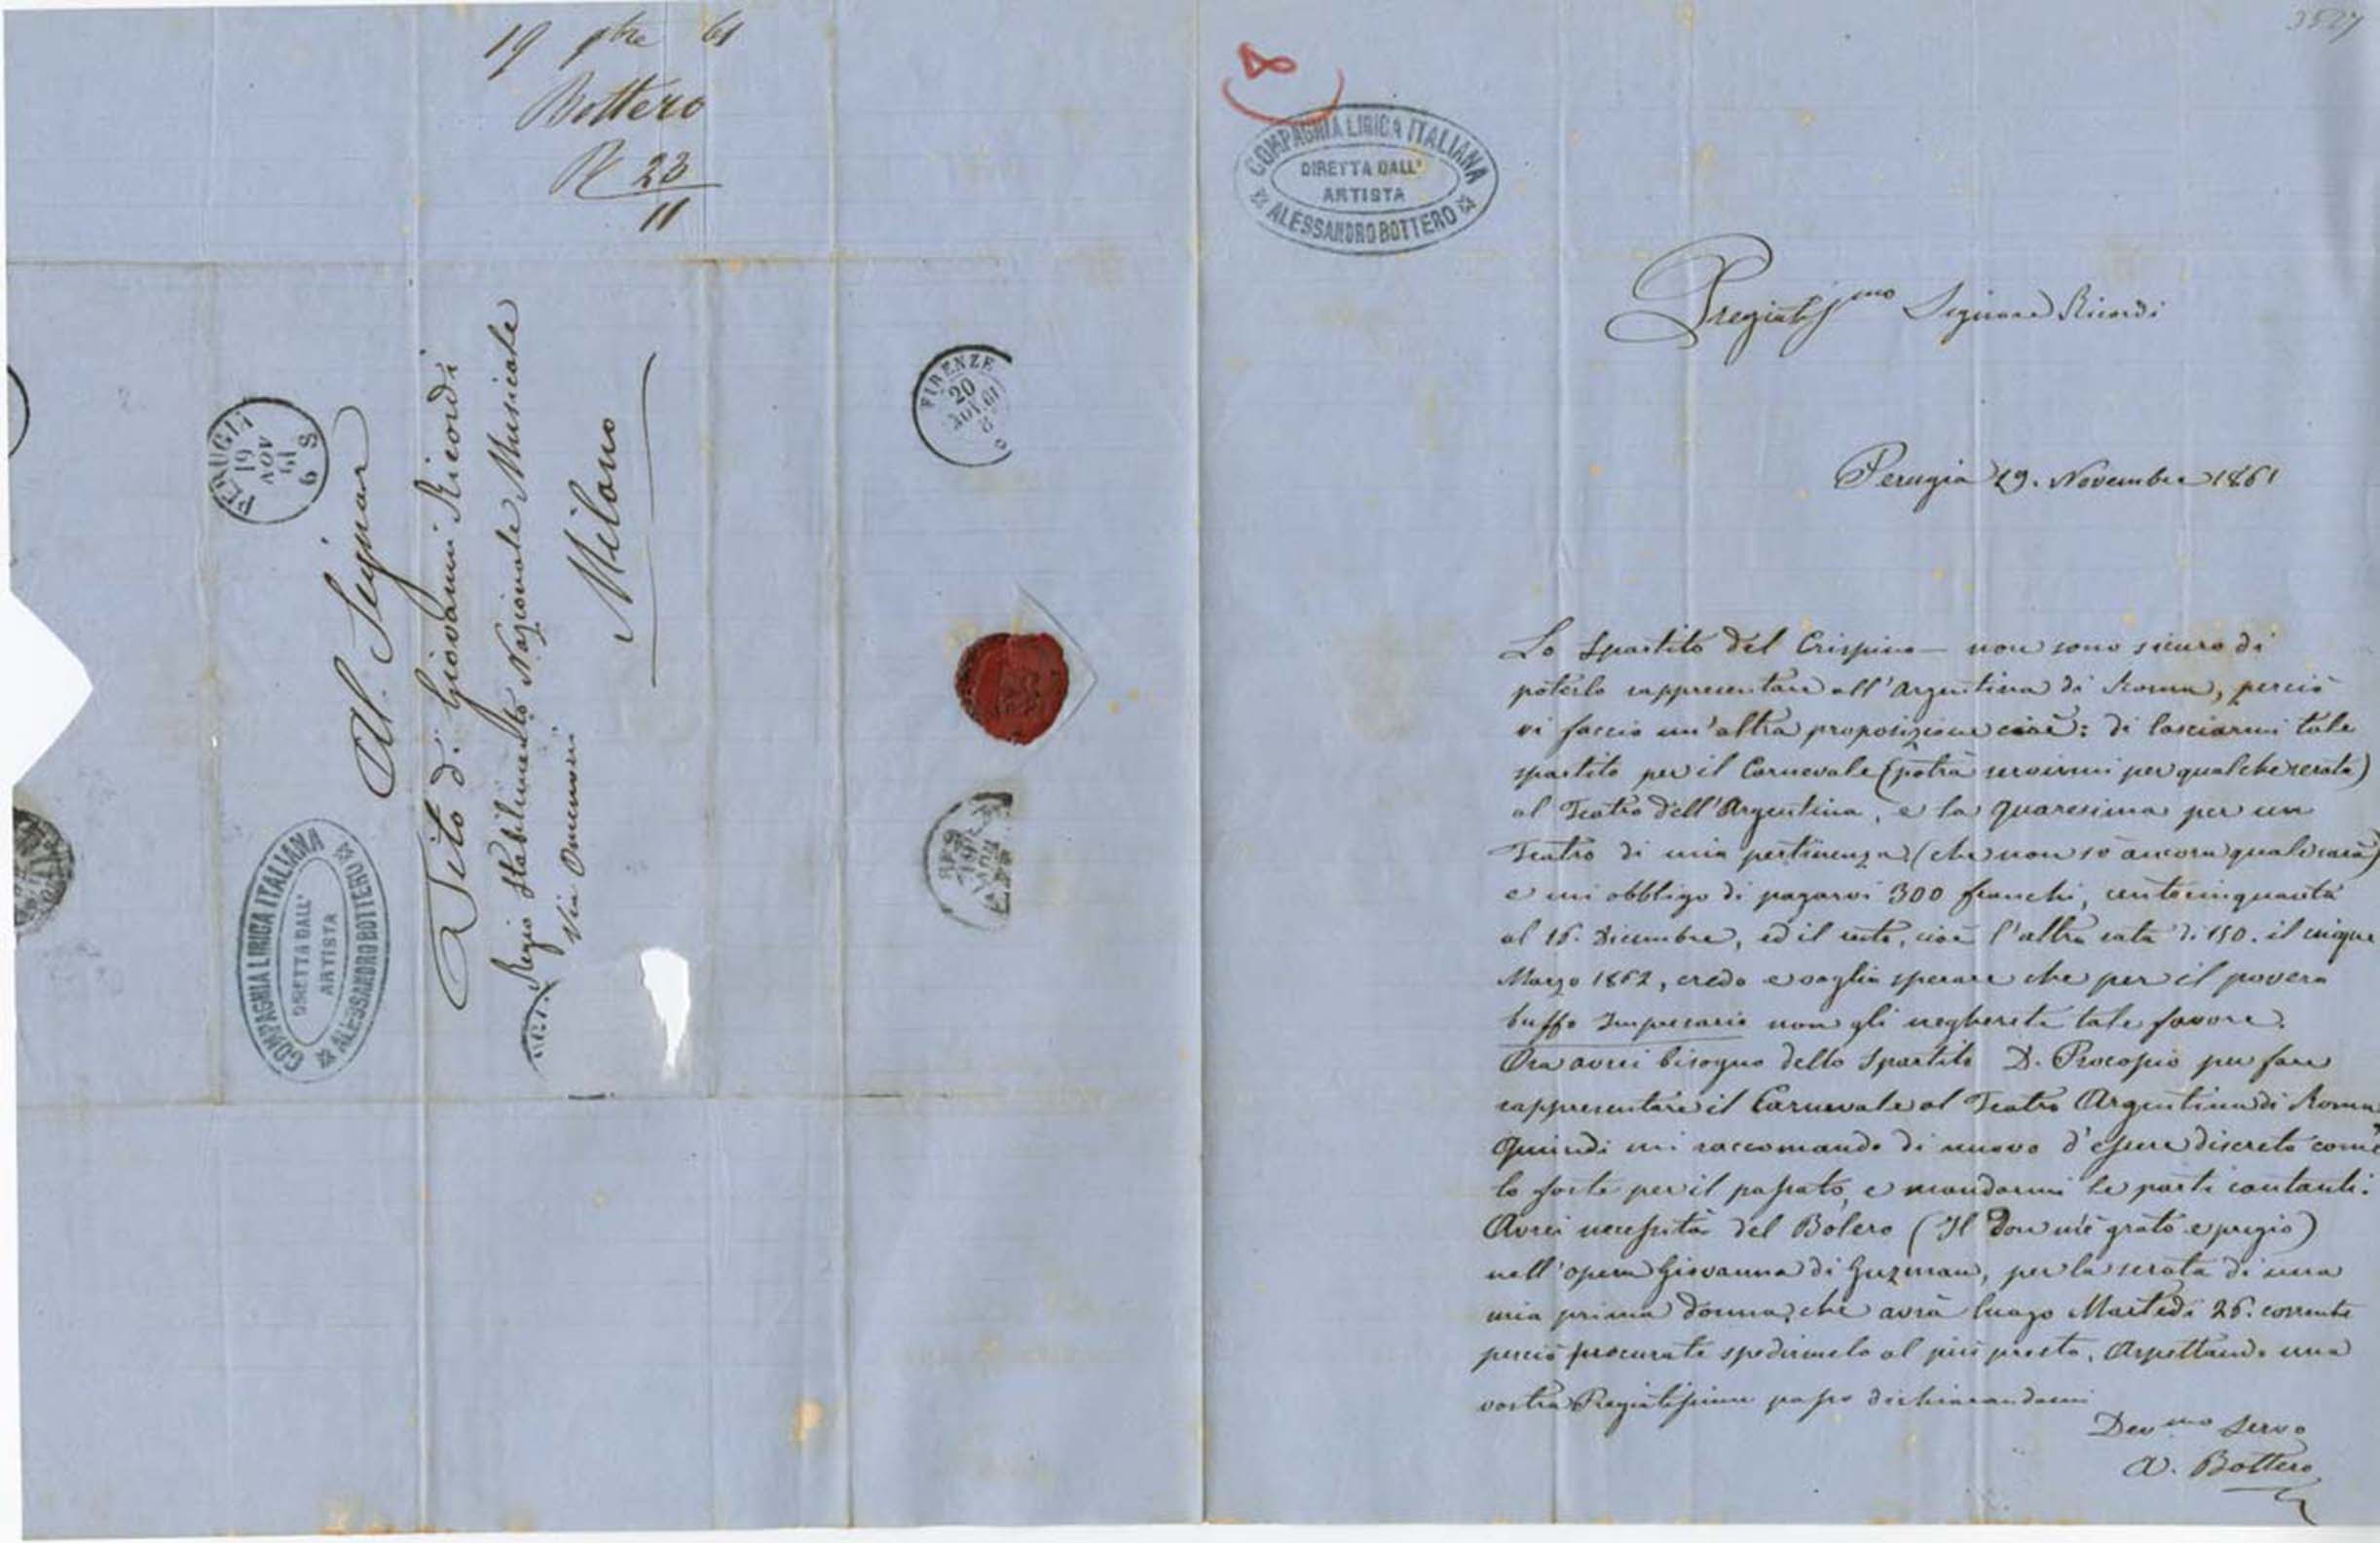 19 9bre 61
Bottero
R 23
11
PERUGIA
19
NOV
61
6 S
Al Signor
Tito di Giovanni Ricordi
Regio Stabilimento Nazionale Musicale
Via Omenoni
Milano
COMPAGNIA LIRICA ITALIANA
DIRETTA DALL'
ARTISTA
ALESSANDRO BOTTERO
FIRENZE
20
NOV. 61
8
3527
8
COMPAGNIA LIRICA ITALIANA
DIRETTA DALL'
ARTISTA
ALESSANDRO BOTTERO
Pregiatissmo Signore Ricordi
Perugia 19. Novembre 1861
Lo Spartito del Crispino – non sono sicuro di
poterlo rappresentare all'Argentina di Roma, perciò
vi faccio un'altra proposizione cioè: di lasciarmi tale
spartito per il Carnevale (potrà servirmi per qualche serata)
al Teatro dell'Argentina, e la Quaresima per un
Teatro di mia pertinenza (che non sò ancora quale sarà)
e mi obbligo di pagarvi 300 franchi, centocinquanta
al 15. Dicembre, ed il resto, cioè l'altra rata di 150. il cinque
Marzo 1862, credo e voglio sperare che per il povero
buffo Impresario non gli negherete tale favore.
Ora avrei bisogno dello Spartito D. Procopio per fare
rappresentare il Carnevale al Teatro Argentina di Roma
Quindi mi raccomando di nuovo d'essere discreto come
lo foste per il passato, e mandarmi le parti cantanti.
Avrei necessità del Bolero (Il don m'è grato e pregio)
nell'opera Giovanna di Guzman, per la serata di una
mia prima donna, che avrà luogo Martedì 26. corrente
perciò procurate spedirmelo al più presto. Aspettando una
vostra Pregiatissima passo dichiarandomi
Devmo Servo
A. Bottero